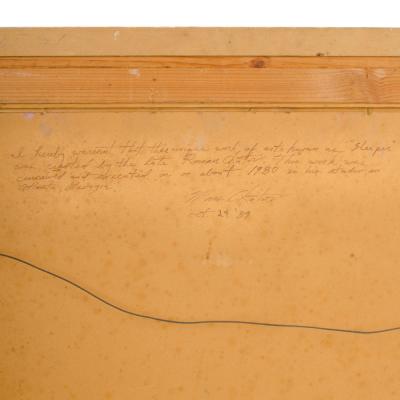 I hereby warrant that this unique work of art known as "Sleeper"
was created by the late Roman Chatov. This work was
conceived and executed on or about 1980 in his studio in
Atlanta, Georgia.
Chatov
Oct 24 '89